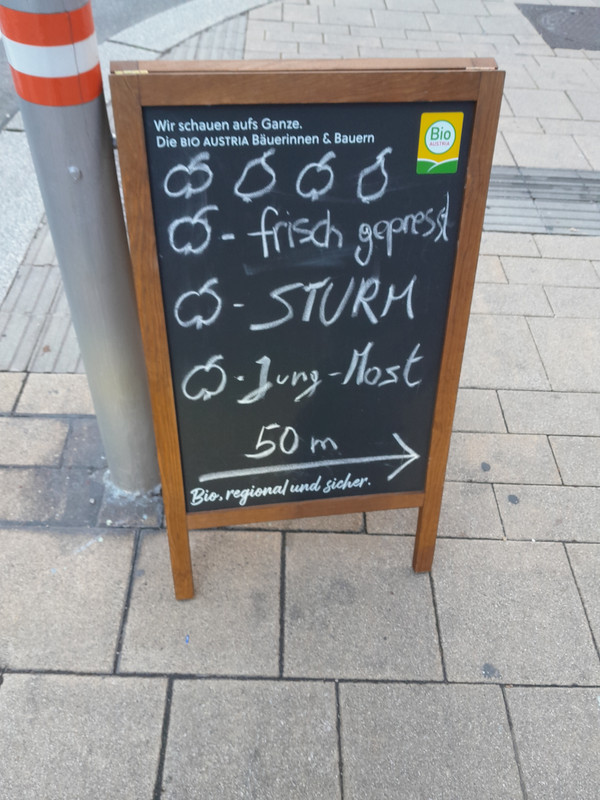 Wir schauen aufs Ganze.
Die BIO AUSTRIA Bäuerinnen & Bauern
Bio
AUSTRIA
- frisch gepresst
- STURM
- Jung-Most
50 m
Bio, regional und sicher.